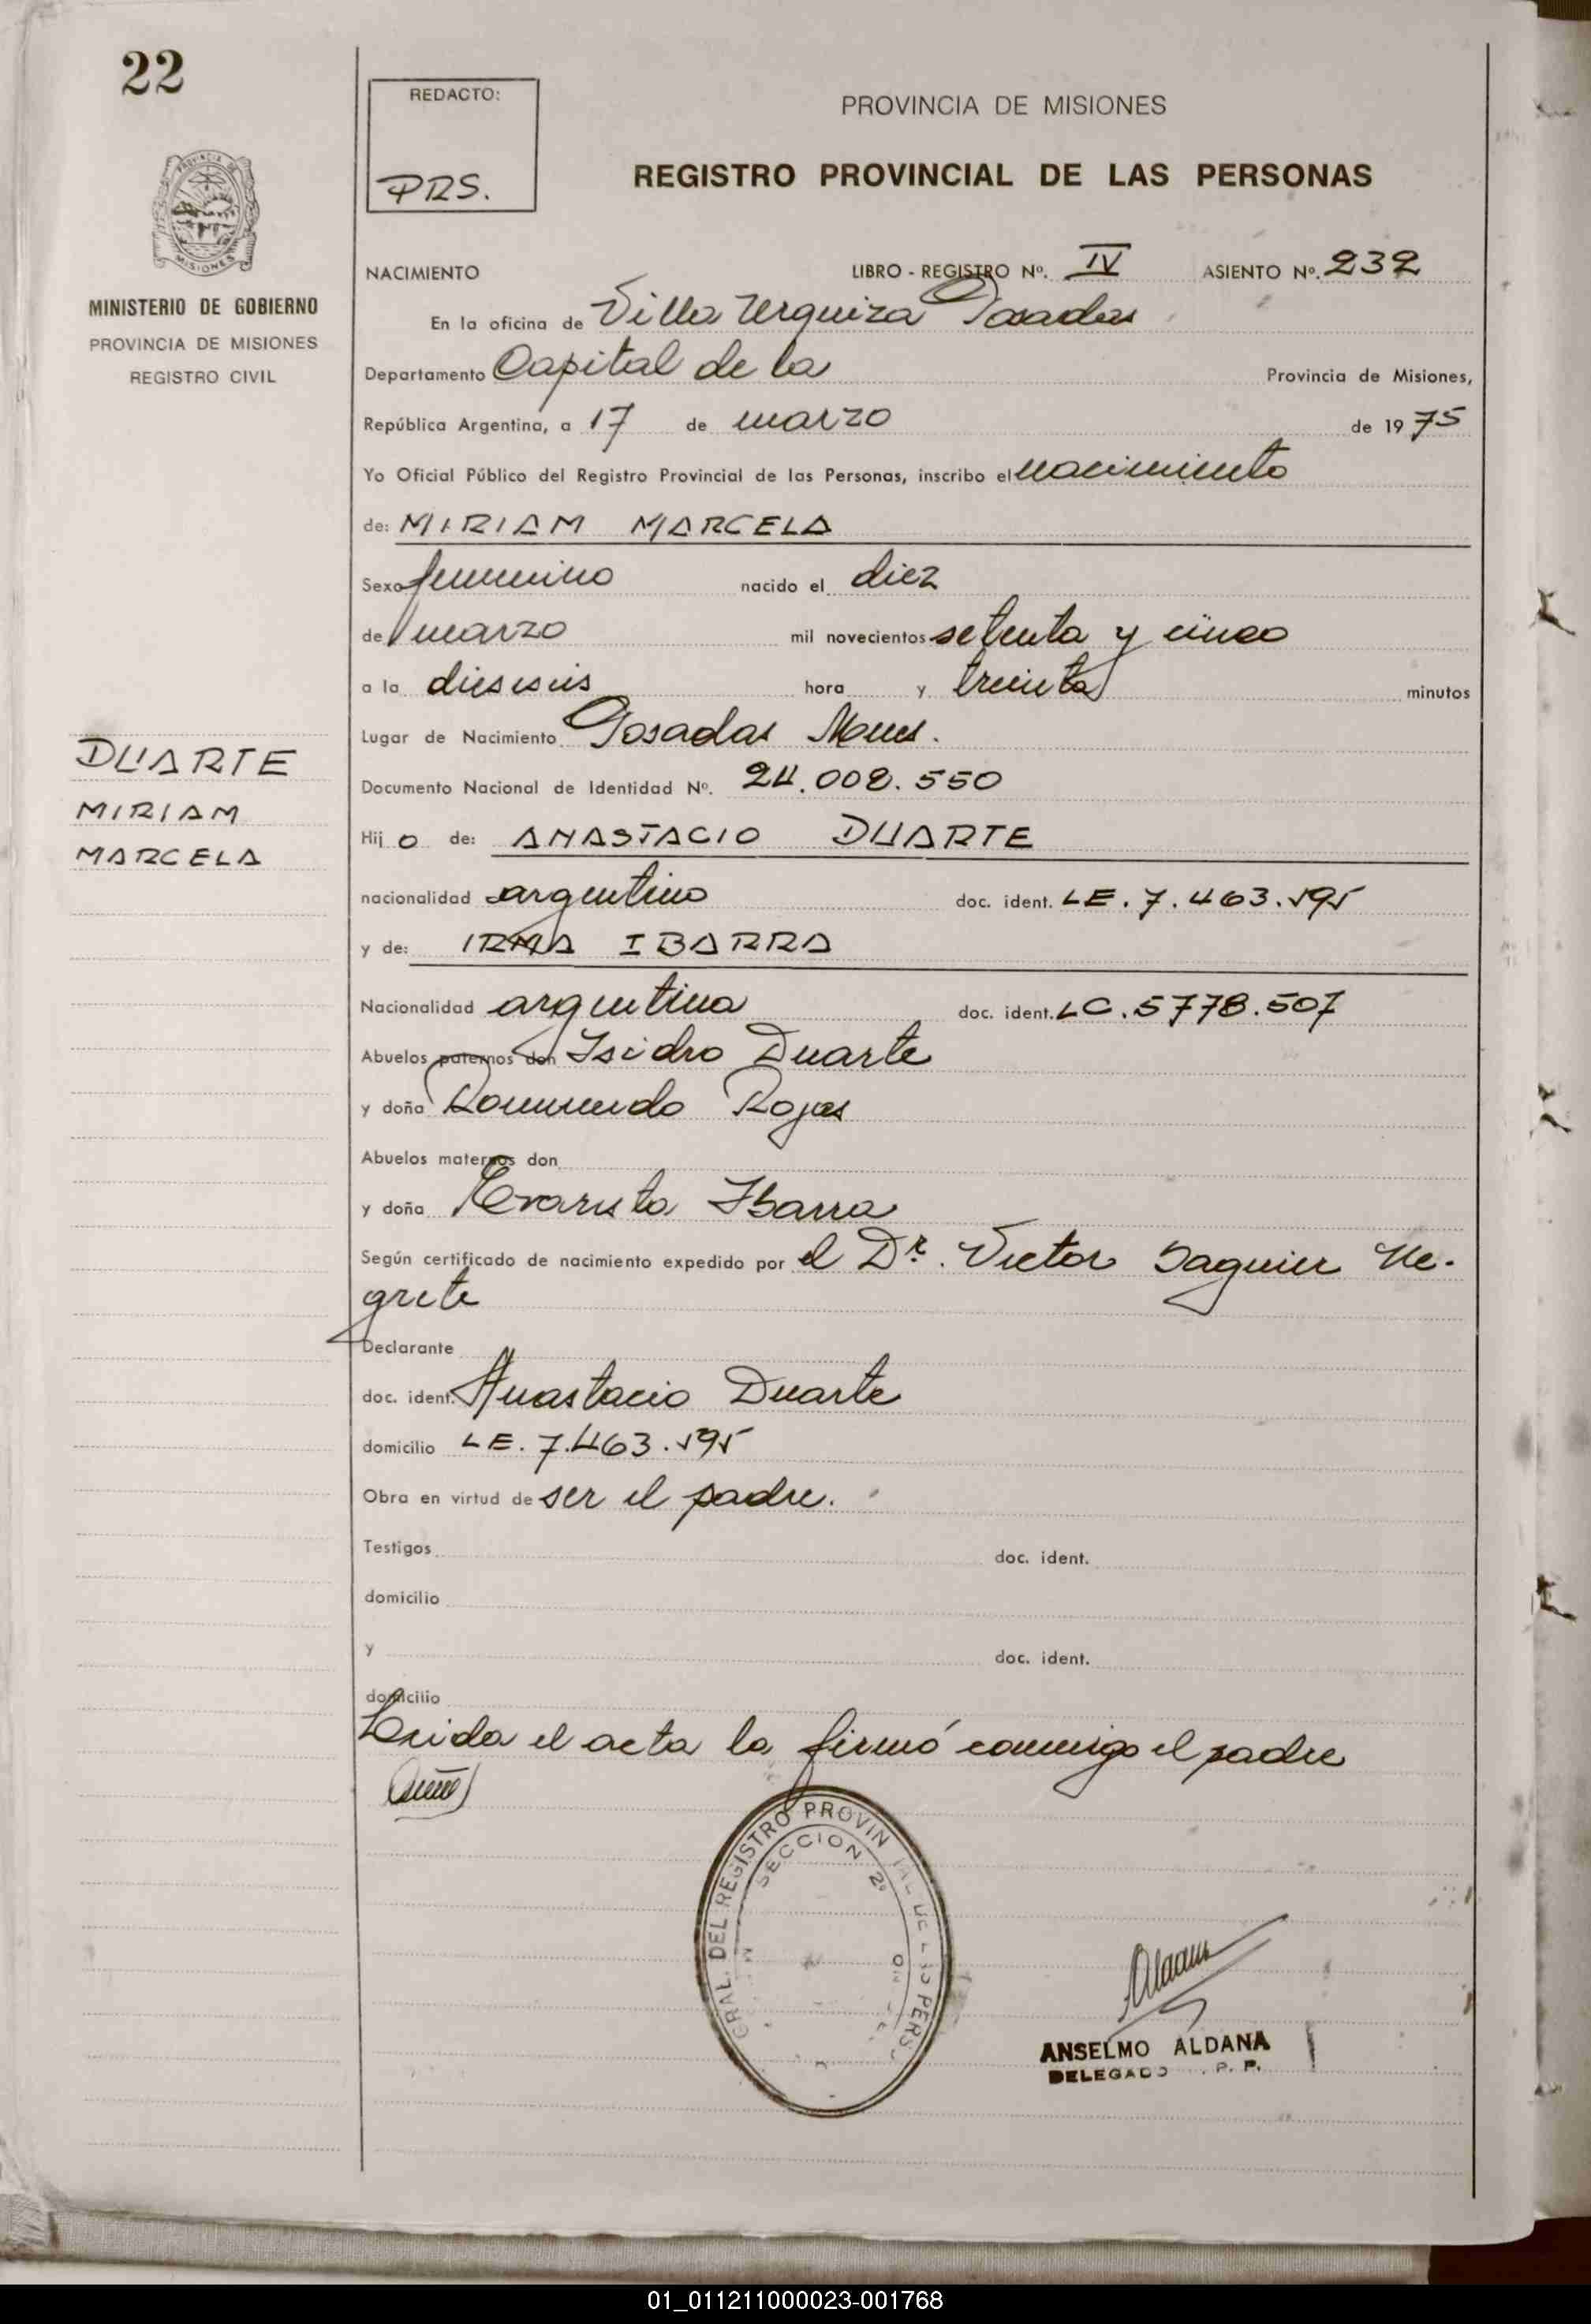 22
REDACTO:
PRS.
PROVINCIA DE MISIONES
REGISTRO PROVINCIAL DE LAS PERSONAS
MISIONES
MINISTERIO DE GOBIERNO
PROVINCIA DE MISIONES
REGISTRO CIVIL
NACIMIENTO LIBRO - REGISTRO Nº. IV ASIENTO Nº. 232
En la oficina de Villa Urquiza Posadas
Departamento Capital de la Provincia de Misiones,
República Argentina, a 17 de marzo de 1975
Yo Oficial Público del Registro Provincial de las Personas, inscribo el nacimiento
de: MIRIAM MARCELA
Sexo femenino nacido el diez
de marzo mil novecientos setenta y cinco
a la dieseseis hora y treinta minutos
Lugar de Nacimiento Posadas Mnes.
DUARTE
MIRIAM
MARCELA
Documento Nacional de Identidad Nº. 24.002.550
Hij o de: ANASTACIO DUARTE
nacionalidad argentino doc. ident. LE. 7.463.595
y de: IRMA IBARRA
Nacionalidad argentina doc. ident. LC. 5778.507
Abuelos paternos don Isidro Duarte
y doña Romunuda Rojas
Abuelos maternos don
y doña Evarista Ibarra
Según certificado de nacimiento expedido por el Dr. Victor Saguier Ne-
grete
Declarante
doc. ident. Anastacio Duarte
domicilio LE. 7.463.595
Obra en virtud de ser el padre.
Testigos doc. ident.
domicilio
y doc. ident.
domicilio
Leida el acta la firmó conmigo el padre
GRAL. DEL REGISTRO PROVIN
SECCION 2º
ANSELMO ALDANA
DELEGADO P. P.
01_011211000023-001768